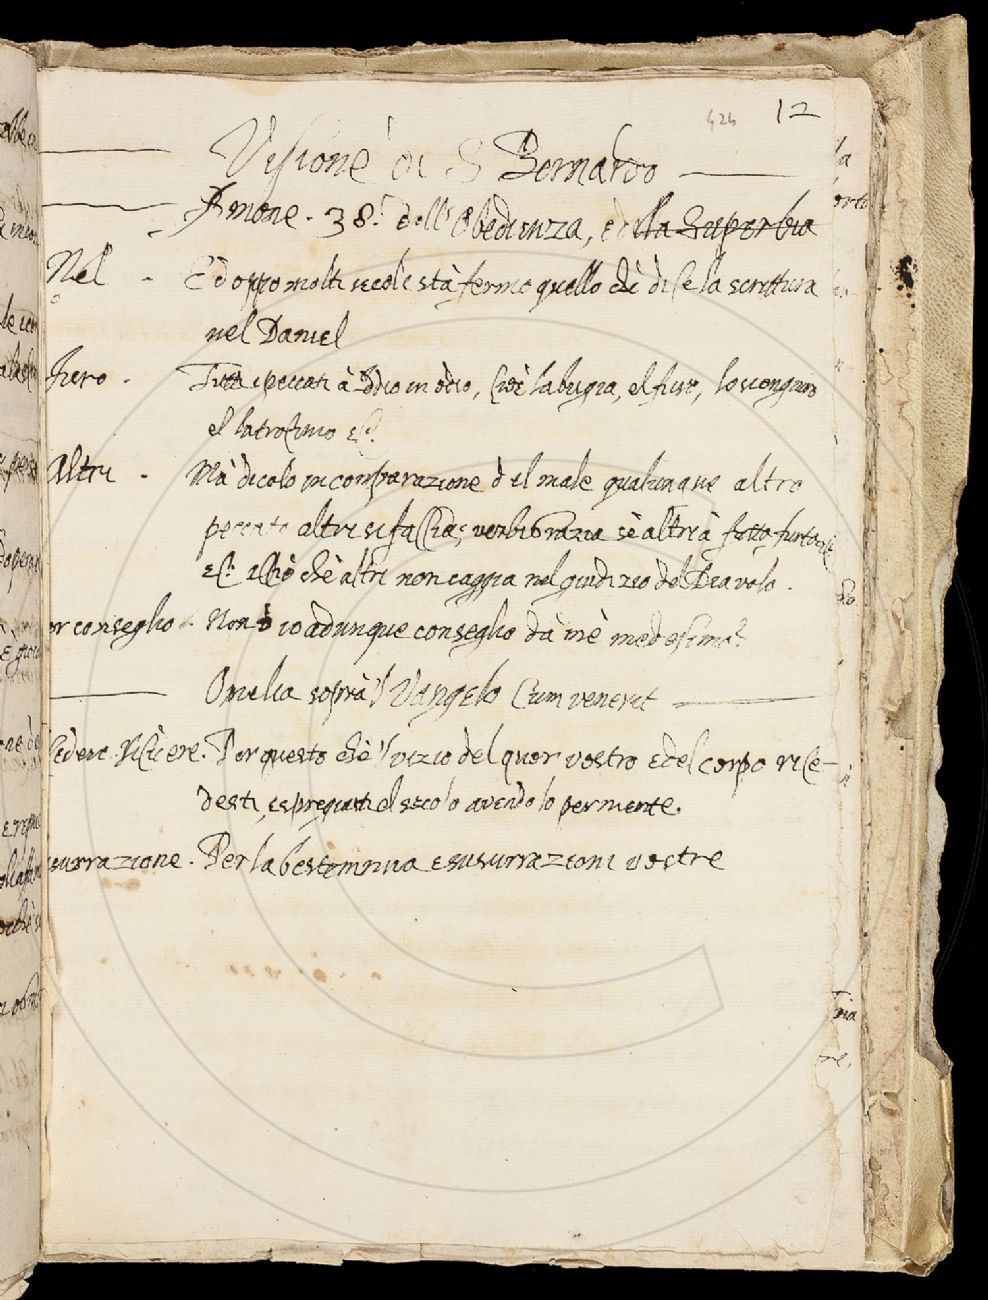 424 12
Visione di S Bernardo
Ammone. 38. dell'Obedienza, e della Superbia
Nel - E dopo molti secoli stà fermo quello chè dise la scrittura
nel Daniel
Furo - Tutti i peccati à Ddio in òdio, cioè la bugia, el furo, lo scongiuro
el latrocinio &c.
Altri - Mà dicolo in comparazione del male qualunque altro
peccato altri si faccia; verbigrazia sè altri à fatto furto
&c. acciò chè altri non caggia nel giudizio del Diavolo.
or conseglio - Non ò io adunque conseglio da mè medesimo?
Omelia soprà 'l Vangelo Cum venerit
Cedere. Ricidere. Per questo chè 'l vizio del quor vostro e del corpo rice-
desti, e spregiasti el secolo avendolo per niente.
surrazione. Per la bestemmia e susurrazioni vostre